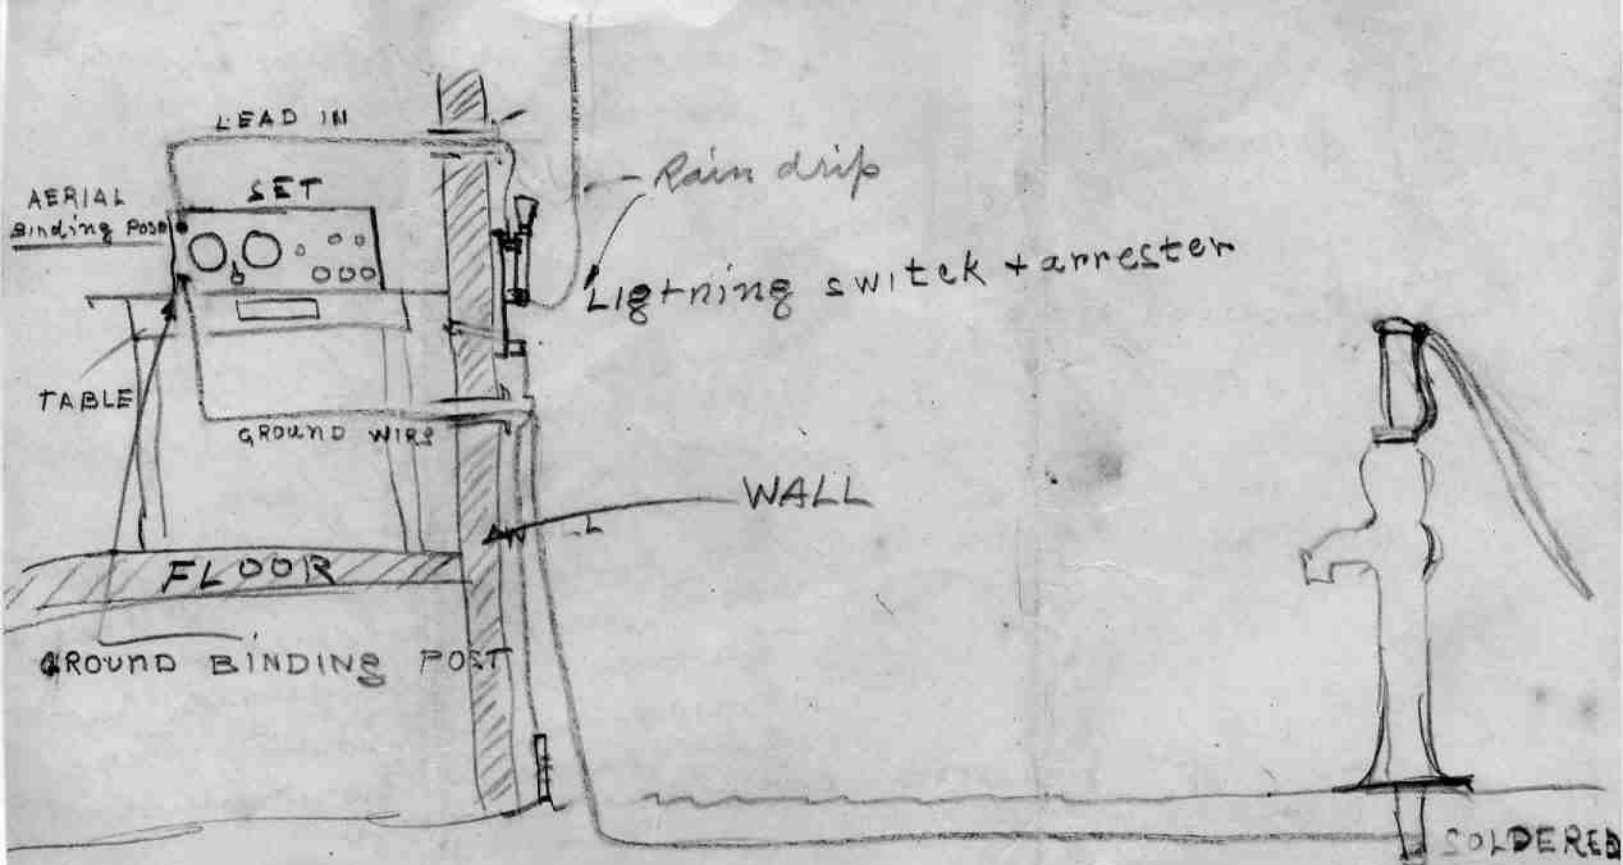 LEAD IN
SET
AERIAL
Binding Post
Rain drip
Ligtning switck + arrester
TABLE
GROUND WIRE
WALL
FLOOR
GROUND BINDING POST
SOLDERED